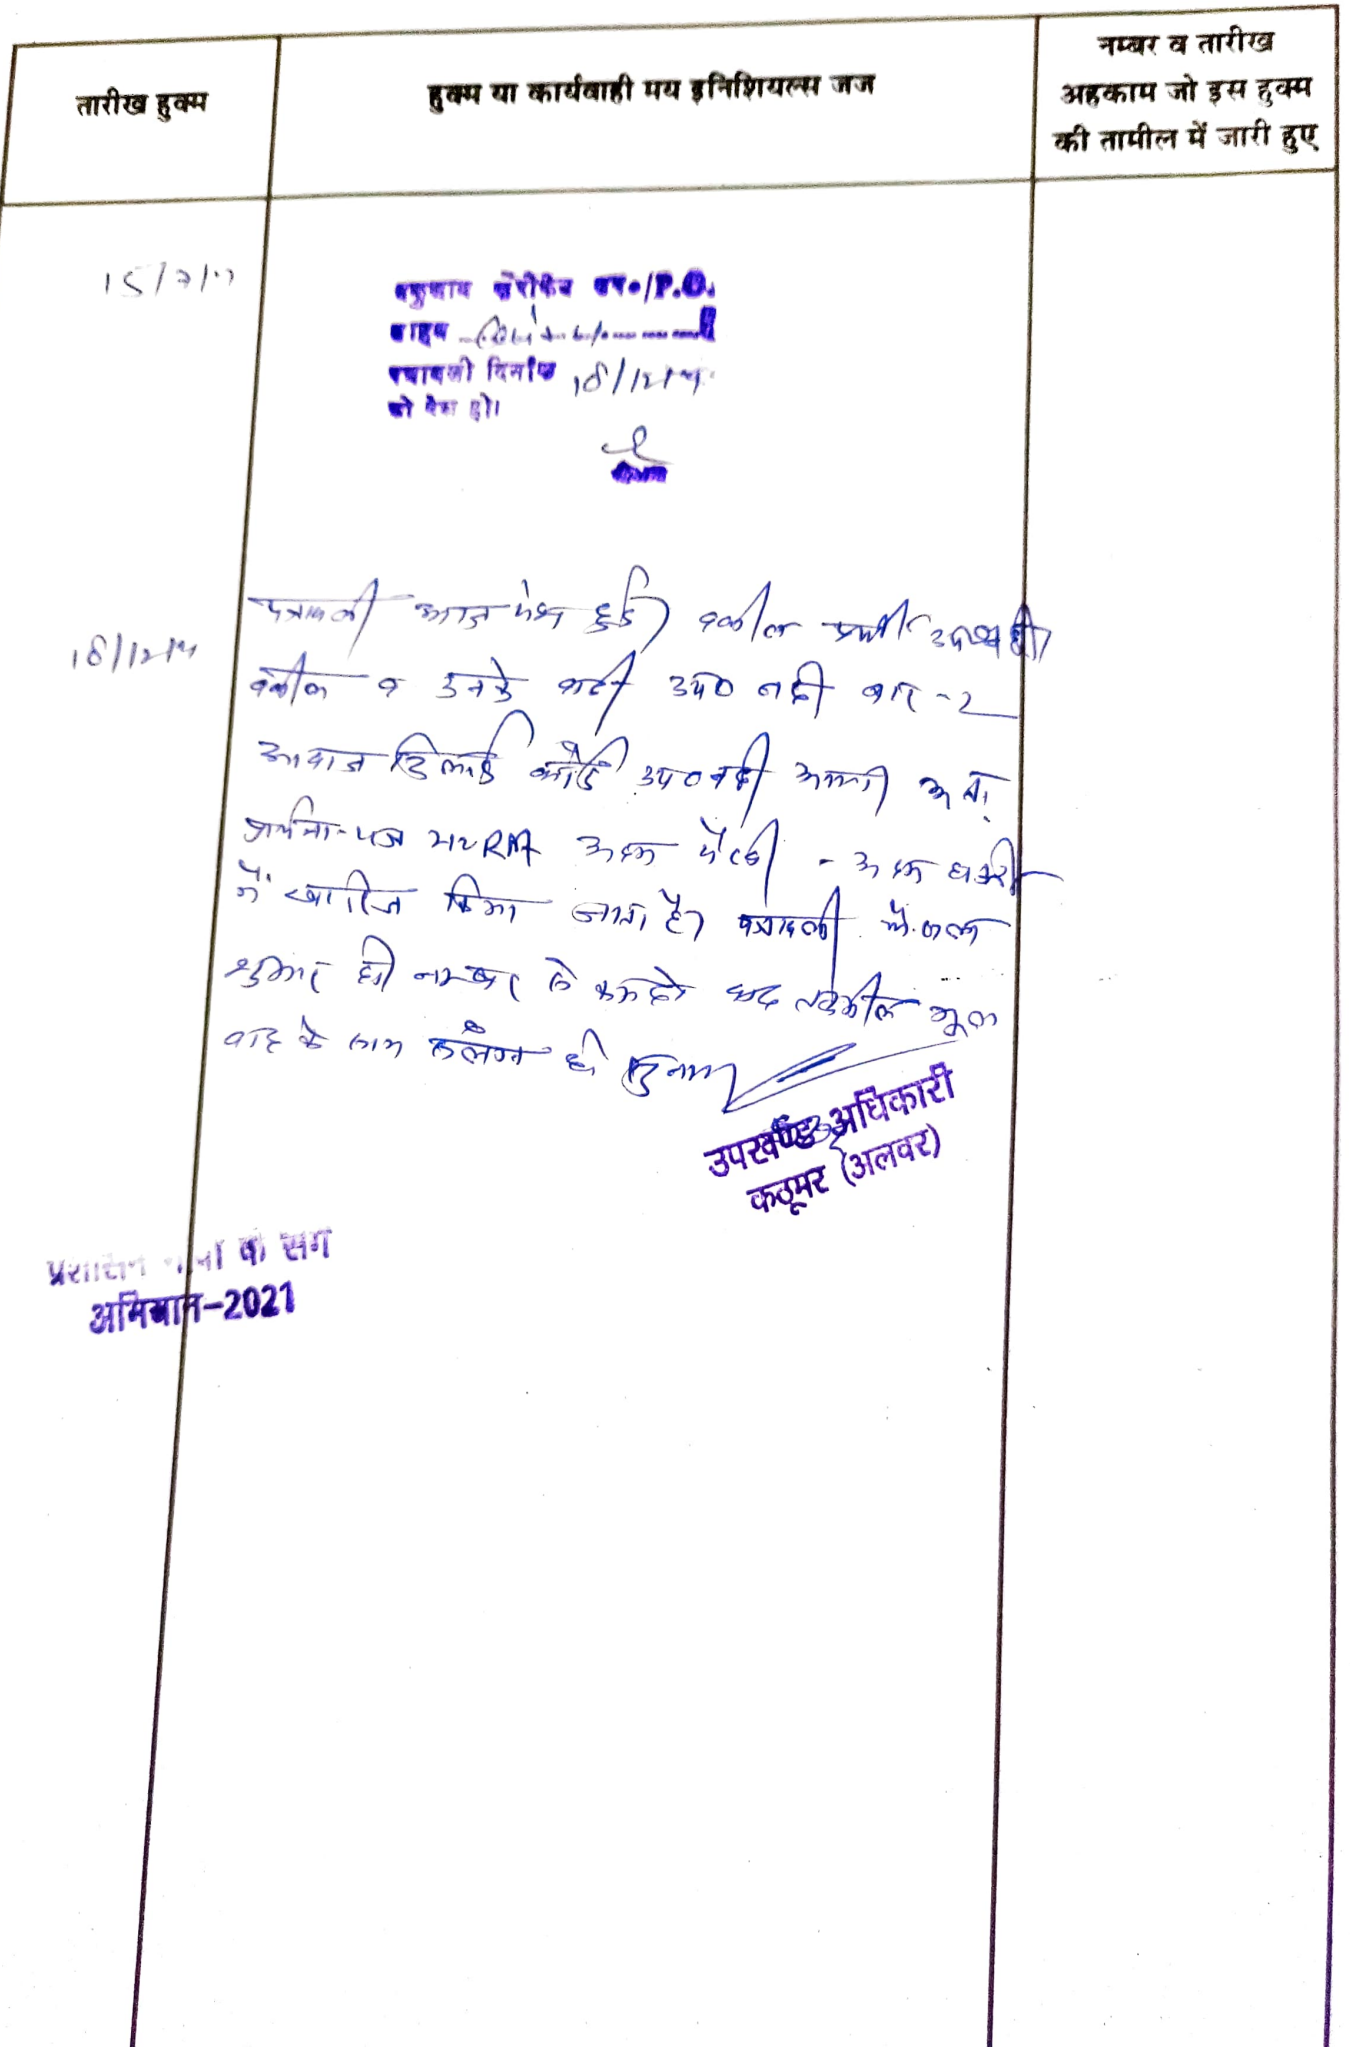 तारीख हुक्म
हुक्म या कार्यवाही मय इनिशियल्स जज
नम्बर व तारीख
अहकाम जो इस हुक्म
की तामील में जारी हुए
15/7/
/P.O.
पत्रावली दिनांक 18/12/
को पेश हो।
18/12/
पत्रावली आज पेश हुई। वकील प्रार्थी
वकील व उनके उप० नहीं बार-2
आवाज दिलाई कोई उप० नहीं आया अतः
प्रार्थना-पत्र मय अदम पैरवी - अदम हाजरी
में खारिज किया जाता है। पत्रावली फैसल
शुमार हो नम्बर से कम हो बाद तकमील मूल
वाद के साथ संलग्न हो
उपखण्ड अधिकारी
कठूमर (अलवर)
प्रशासन के संग
अभियान-2021